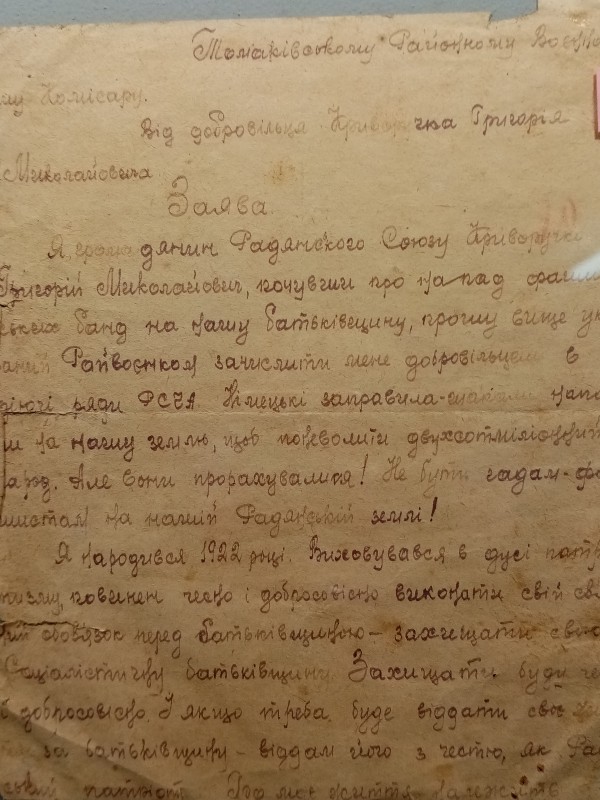 Томаківському Районному Воєнно
му Комісару.
Від добровільця Криворучка Григорія
Миколайовича
Заява
Я, громадянин Радянского Союзу Криворучка
Григорій Миколайович, почувши про напад фаши
банд на нашу батьківщину, прошу вище ук
Райвоєнком зачислити мене добровільцем в
діючі ряди РСЧА. Німецькі заправила- напа
ли на нашу землю, щоб поневолити двухсотміліонний
народ. Але вони прорахувалися! Не бути гадам-фа
шистам на нашій Радянській землі!
Я народився 1922 році. Виховувався в дусі патр
тизму, повинен чесно і добросовісно виконати свій свя
обов'язок перед батьківщиною – захищати свою
Соціалістичну батьківщину. Захищати буду че
добросовісно. І якщо треба буде віддати своє
за батьківщину – віддам його з честю, як Ра
ський патріот. Бо моє життя належить